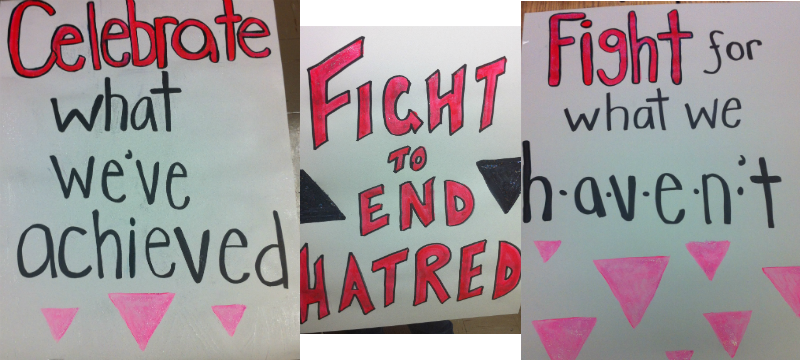 Celebrate
what
we've
achieved
FIGHT
TO
END
HATRED
Fight for
what we
h·a·v·e·n't